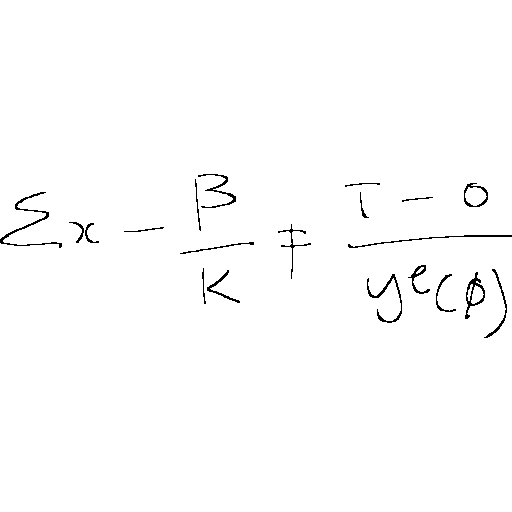 Σx − β/K ≠ (T − 0)/(y^e(ϕ))